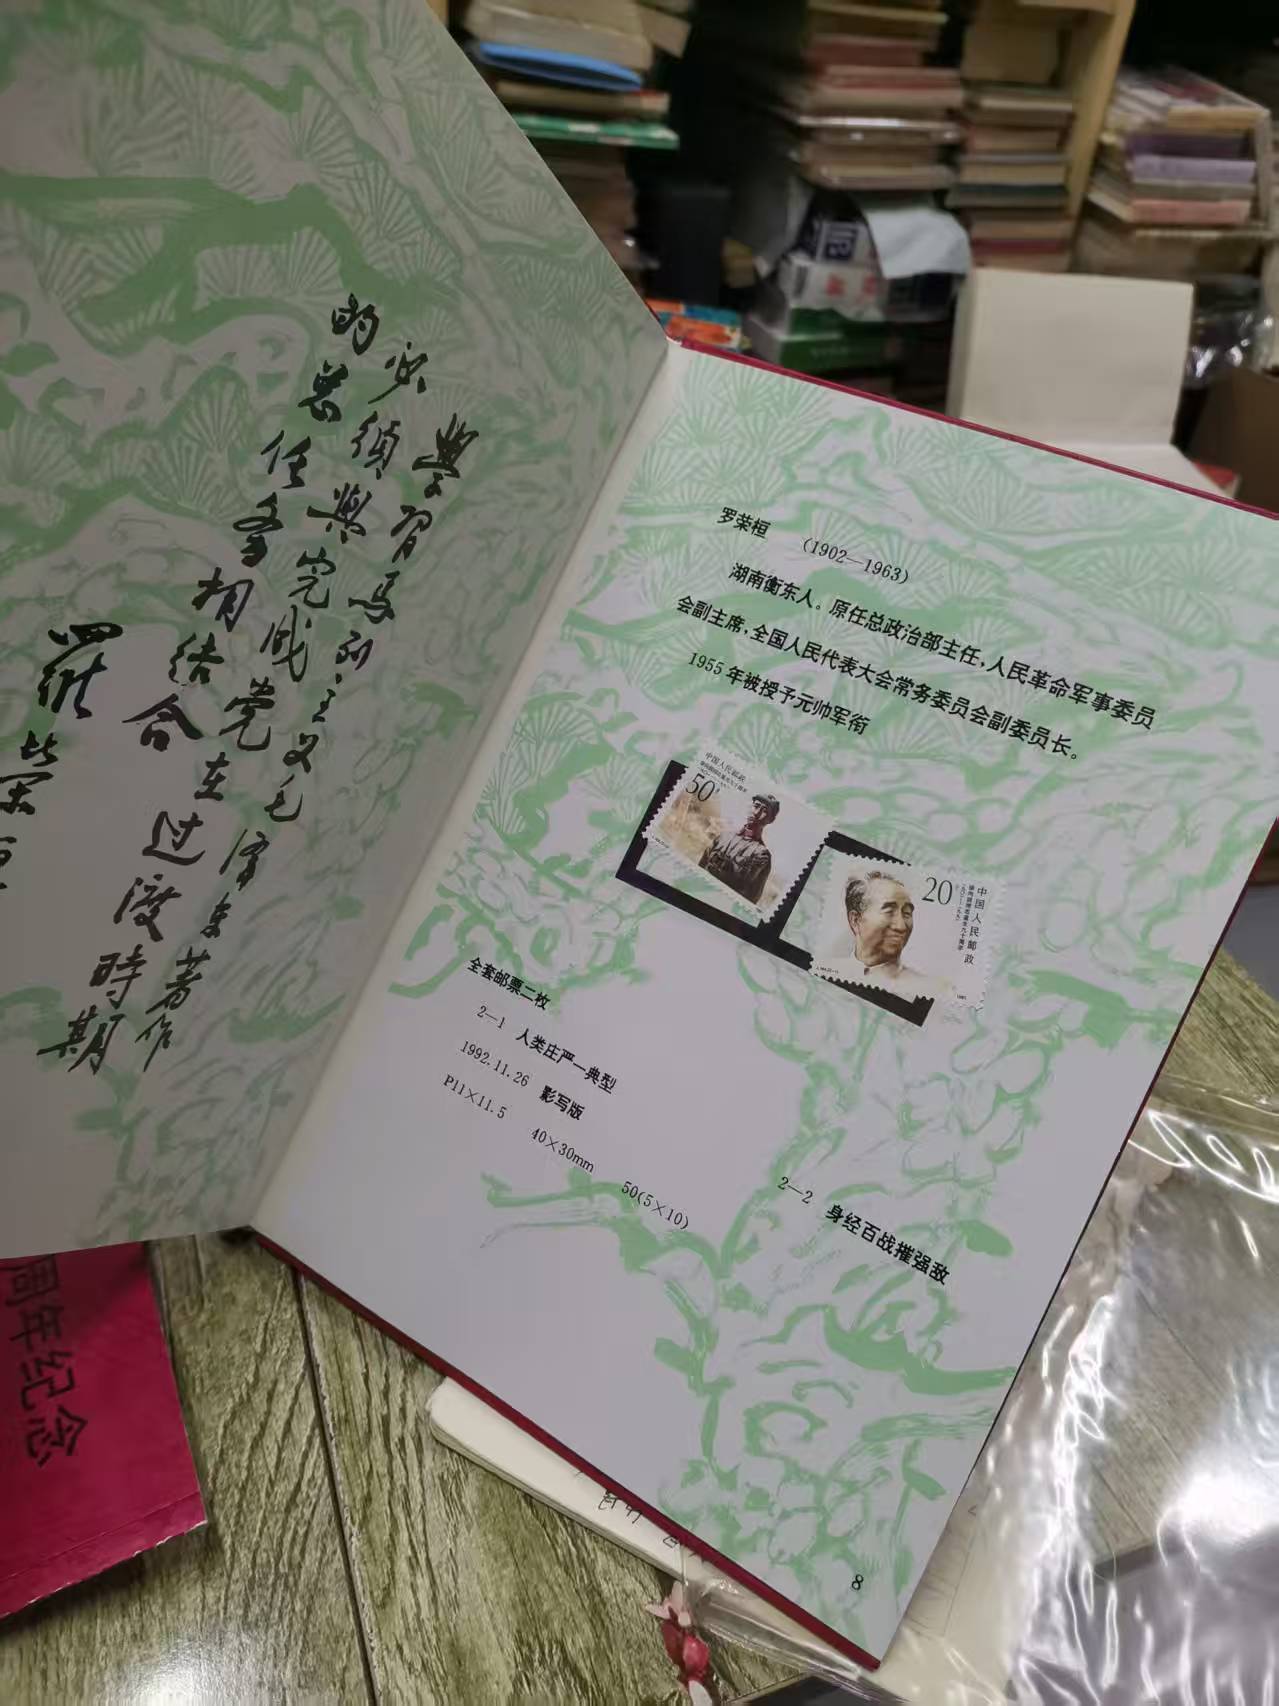 學習馬列主义毛泽东著作
必須與完成党在过渡時期
的总任务相结合
羅荣桓
罗荣桓 (1902—1963)
湖南衡东人。原任总政治部主任,人民革命军事委员
会副主席,全国人民代表大会常务委员会副委员长。
1955年被授予元帅军衔
中国人民邮政
50
20
中国人民邮政
全套邮票二枚
2—1 人类庄严一典型
2—2 身经百战摧强敌
1992.11.26 影写版
P11×11.5 40×30mm 50(5×10)
8
周年纪念